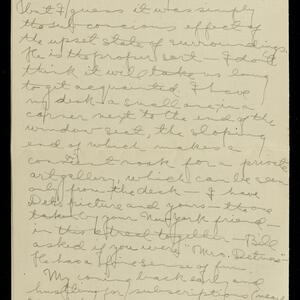 but I guess it was simply
the sub-conscious effect of
the upset state of surroundings.
He is the proper sort - I don't
think it will take us long
to get acquainted. I have
my desk - a small one, in a
corner next to the end of the
window seat, the sloping
end of which makes a
nook for a private
art gallery, which can be seen
only from the desk - I have
picture and yours - the one
taken by your New York friend -
in this together - Bill
asked if you were "Mrs.
He has a fine sense of fun.
My coming back early and
hustling for subscriptions